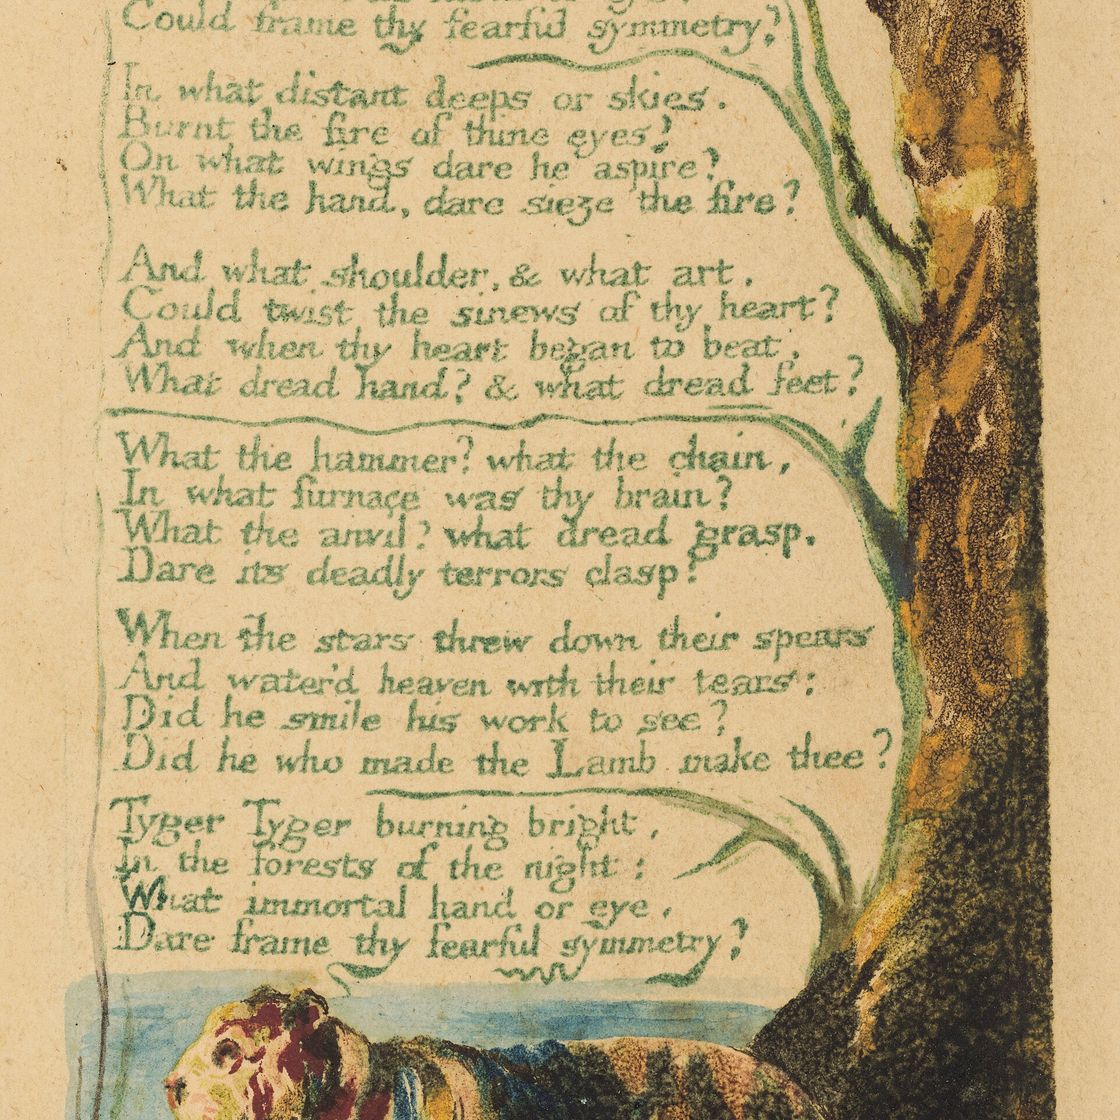 Could frame thy fearful symmetry?
In what distant deeps or skies.
Burnt the fire of thine eyes?
On what wings dare he aspire?
What the hand, dare sieze the fire?
And what shoulder, & what art,
Could twist the sinews of thy heart?
And when thy heart began to beat,
What dread hand? & what dread feet?
What the hammer? what the chain,
In what furnace was thy brain?
What the anvil? what dread grasp,
Dare its deadly terrors clasp?
When the stars threw down their spears
And water'd heaven with their tears:
Did he smile his work to see?
Did he who made the Lamb make thee?
Tyger Tyger burning bright,
In the forests of the night:
What immortal hand or eye,
Dare frame thy fearful symmetry?